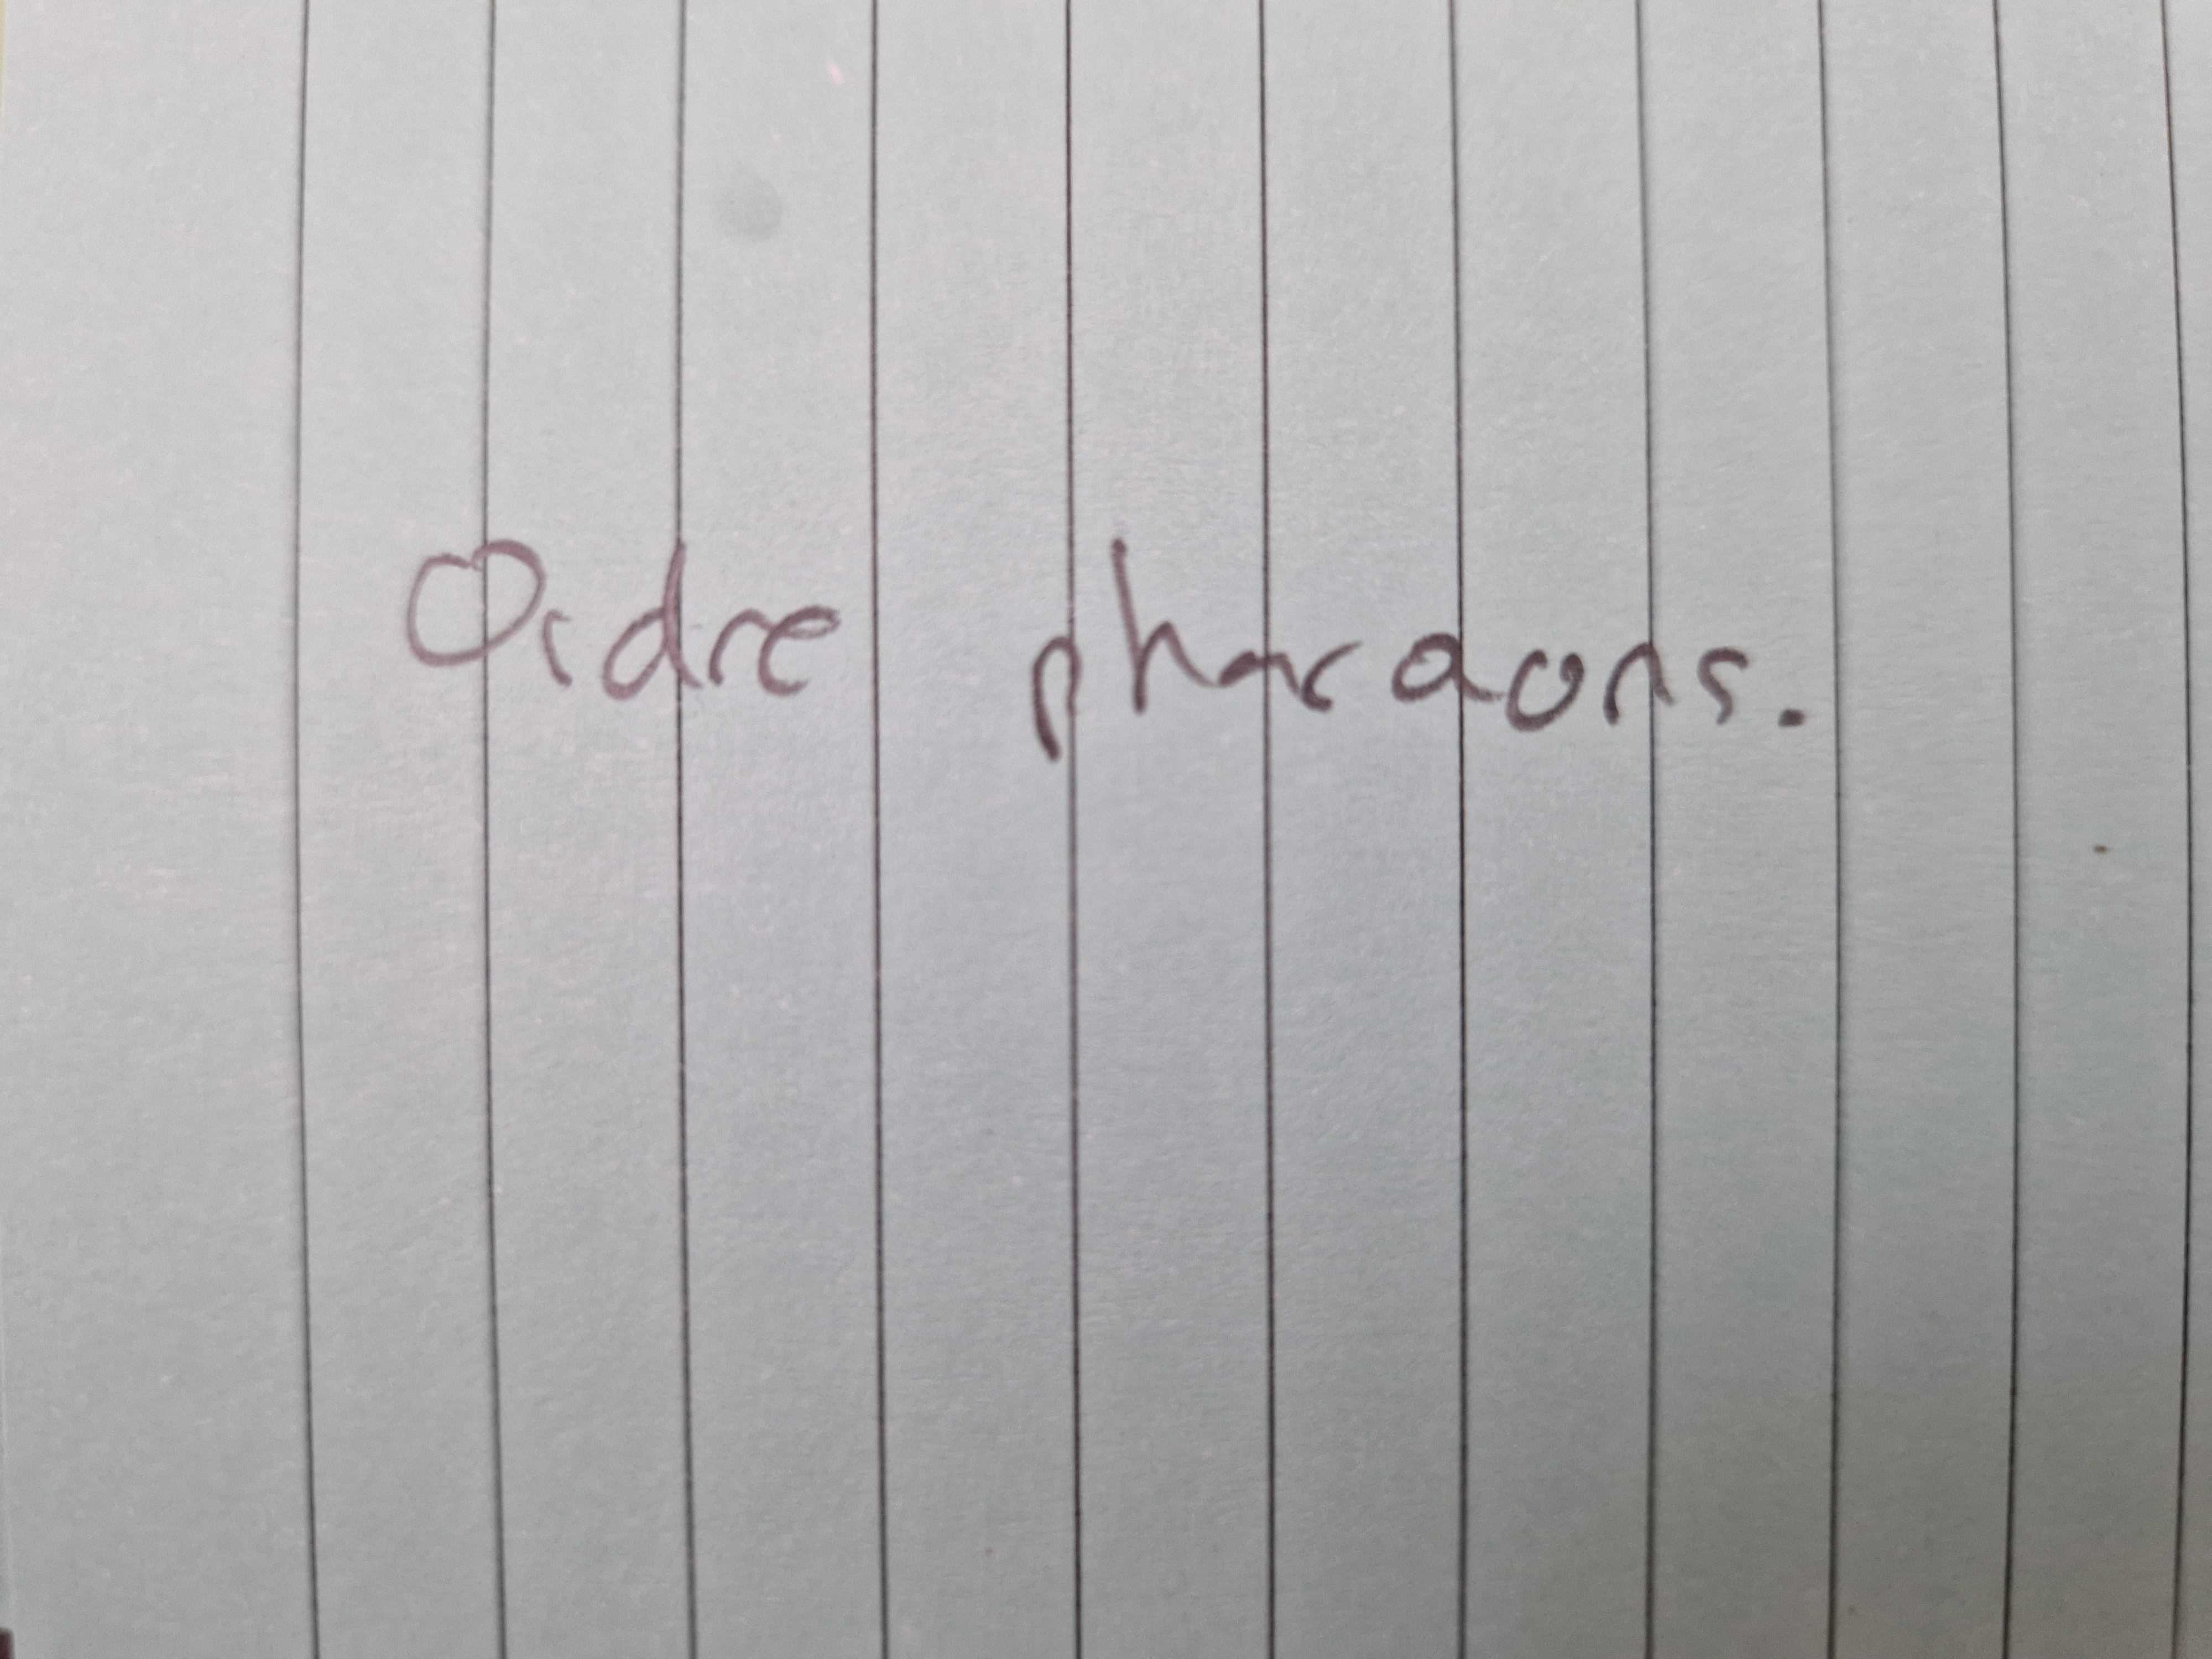 Ordre pharaons.